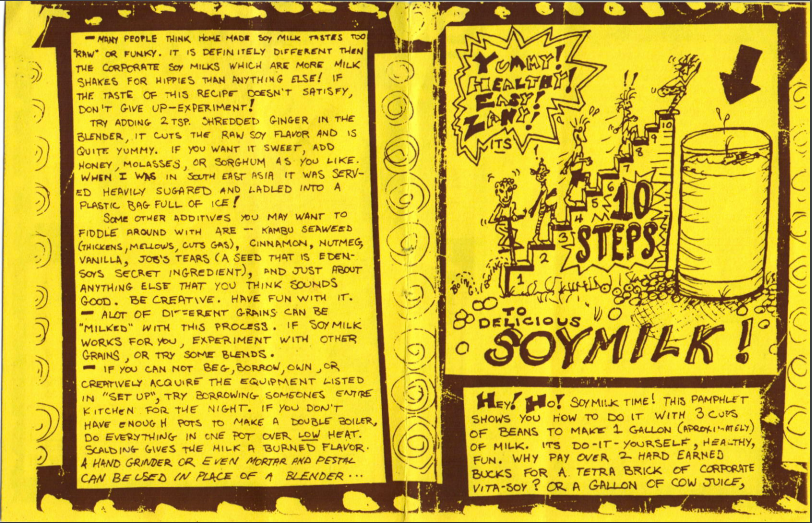 — MANY PEOPLE THINK HOME MADE SOY MILK TASTES TOO
"RAW" OR FUNKY. IT IS DEFINITELY DIFFERENT THEN
THE CORPORATE SOY MILKS WHICH ARE MORE MILK
SHAKES FOR HIPPIES THAN ANYTHING ELSE! IF
THE TASTE OF THIS RECIPE DOESN'T SATISFY,
DON'T GIVE UP-EXPERIMENT!
TRY ADDING 2 TSP. SHREDDED GINGER IN THE
BLENDER, IT CUTS THE RAW SOY FLAVOR AND IS
QUITE YUMMY. IF YOU WANT IT SWEET, ADD
HONEY, MOLASSES, OR SORGHUM AS YOU LIKE.
WHEN I WAS IN SOUTH EAST ASIA IT WAS SERV-
ED HEAVILY SUGARED AND LADLED INTO A
PLASTIC BAG FULL OF ICE!
SOME OTHER ADDITIVES YOU MAY WANT TO
FIDDLE AROUND WITH ARE — KAMBU SEAWEED
(THICKENS, MELLOWS, CUTS GAS), CINNAMON, NUTMEG,
VANILLA, JOB'S TEARS (A SEED THAT IS EDEN-
SOYS SECRET INGREDIENT), AND JUST ABOUT
ANYTHING ELSE THAT YOU THINK SOUNDS
GOOD. BE CREATIVE. HAVE FUN WITH IT.
— ALOT OF DIFFERENT GRAINS CAN BE
"MILKED" WITH THIS PROCESS. IF SOYMILK
WORKS FOR YOU, EXPERIMENT WITH OTHER
GRAINS, OR TRY SOME BLENDS.
— IF YOU CAN NOT BEG, BORROW, OWN, OR
CREATIVELY ACQUIRE THE EQUIPMENT LISTED
IN "SET UP", TRY BORROWING SOMEONES ENTIRE
KITCHEN FOR THE NIGHT. IF YOU DON'T
HAVE ENOUGH POTS TO MAKE A DOUBLE BOILER,
DO EVERYTHING IN ONE POT OVER LOW HEAT.
SCALDING GIVES THE MILK A BURNED FLAVOR.
A HAND GRINDER OR EVEN MORTAR AND PESTAL
CAN BE USED IN PLACE OF A BLENDER...
YUMMY!
HEALTHY!
EASY!
ZANY!
ITS
1
2
3
4
5
6
7
8
9
10
10
STEPS
BOING
TO
DELICIOUS
SOYMILK!
HEY! HO! SOYMILK TIME! THIS PAMPHLET
SHOWS YOU HOW TO DO IT WITH 3 CUPS
OF BEANS TO MAKE 1 GALLON (APROXIMELY)
OF MILK. ITS DO-IT-YOURSELF, HEALTHY,
FUN. WHY PAY OVER 2 HARD EARNED
BUCKS FOR A TETRA BRICK OF CORPORATE
VITA-SOY? OR A GALLON OF COW JUICE,